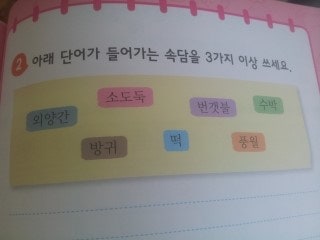 2 아래 단어가 들어가는 속담을 3가지 이상 쓰세요.
외양간 소도둑 번갯불 수박
방귀 떡 풍월